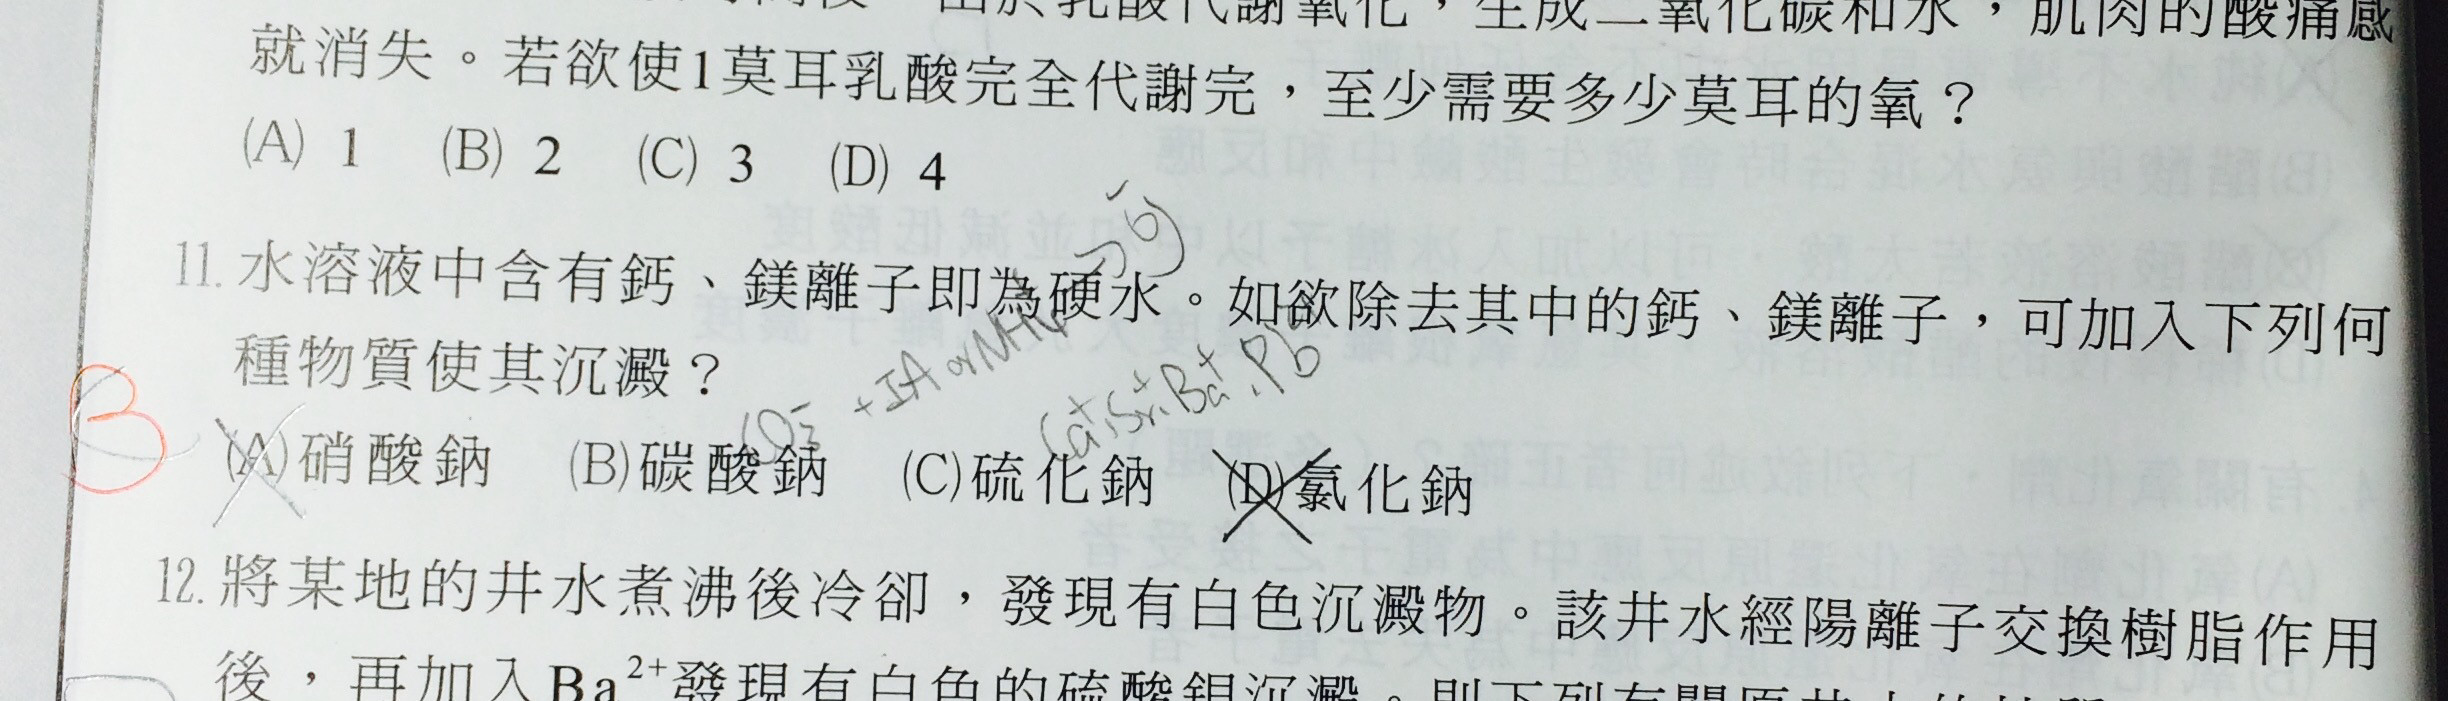 由於乳酸代謝氧化，生成二氧化碳和水，肌肉的酸痛感
就消失。若欲使1莫耳乳酸完全代謝完，至少需要多少莫耳的氧？
(A) 1 (B) 2 (C) 3 (D) 4
11. 水溶液中含有鈣、鎂離子即為硬水。如欲除去其中的鈣、鎂離子，可加入下列何
種物質使其沉澱？
B
(A)硝酸鈉 (B)碳酸鈉 (C)硫化鈉 (D)氯化鈉
12. 將某地的井水煮沸後冷卻，發現有白色沉澱物。該井水經陽離子交換樹脂作用
後，再加入Ba²⁺發現有白色的硫酸鋇沉澱。則下列有關原井水的